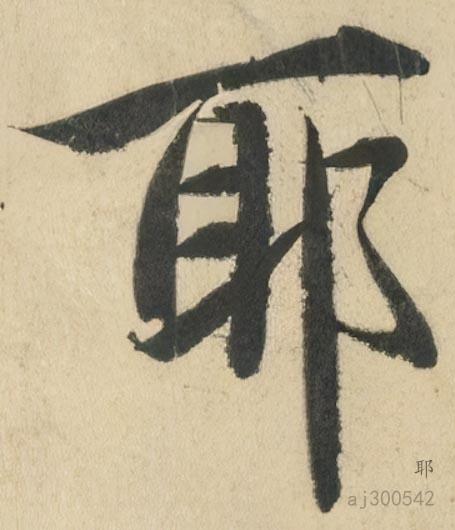 耶
耶
aj300542